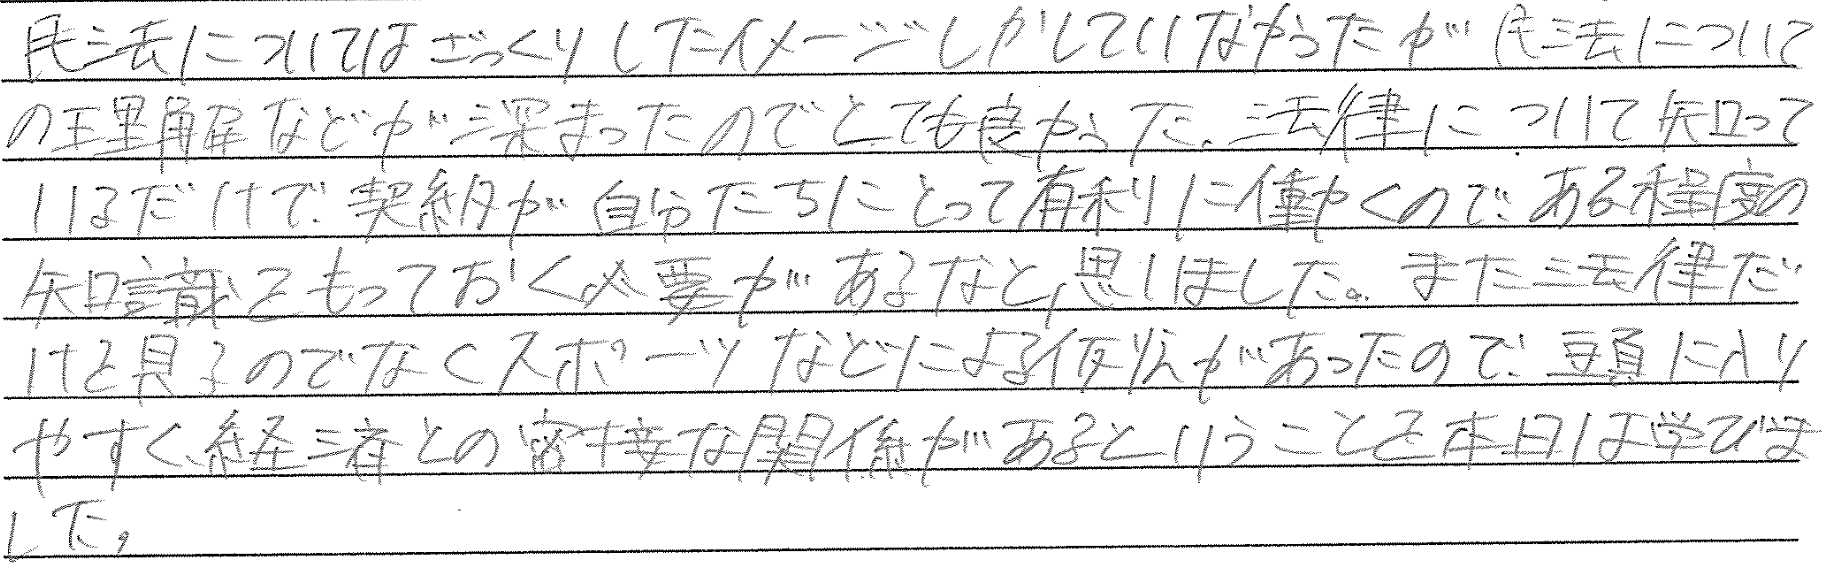 民法についてはざっくりしたイメージしかしていなかったが民法について
の理解などが深まったのでとても良かった。法律について知って
いるだけで、契約が自分たちにとって有利に働くので、ある程度の
知識をもっておく必要があるなと思いました。また法律だ
けを見るのでなくスポーツなどによる例えがあったので、頭に入り
やすく、経済との密接な関係があるということを本日は学びま
した。